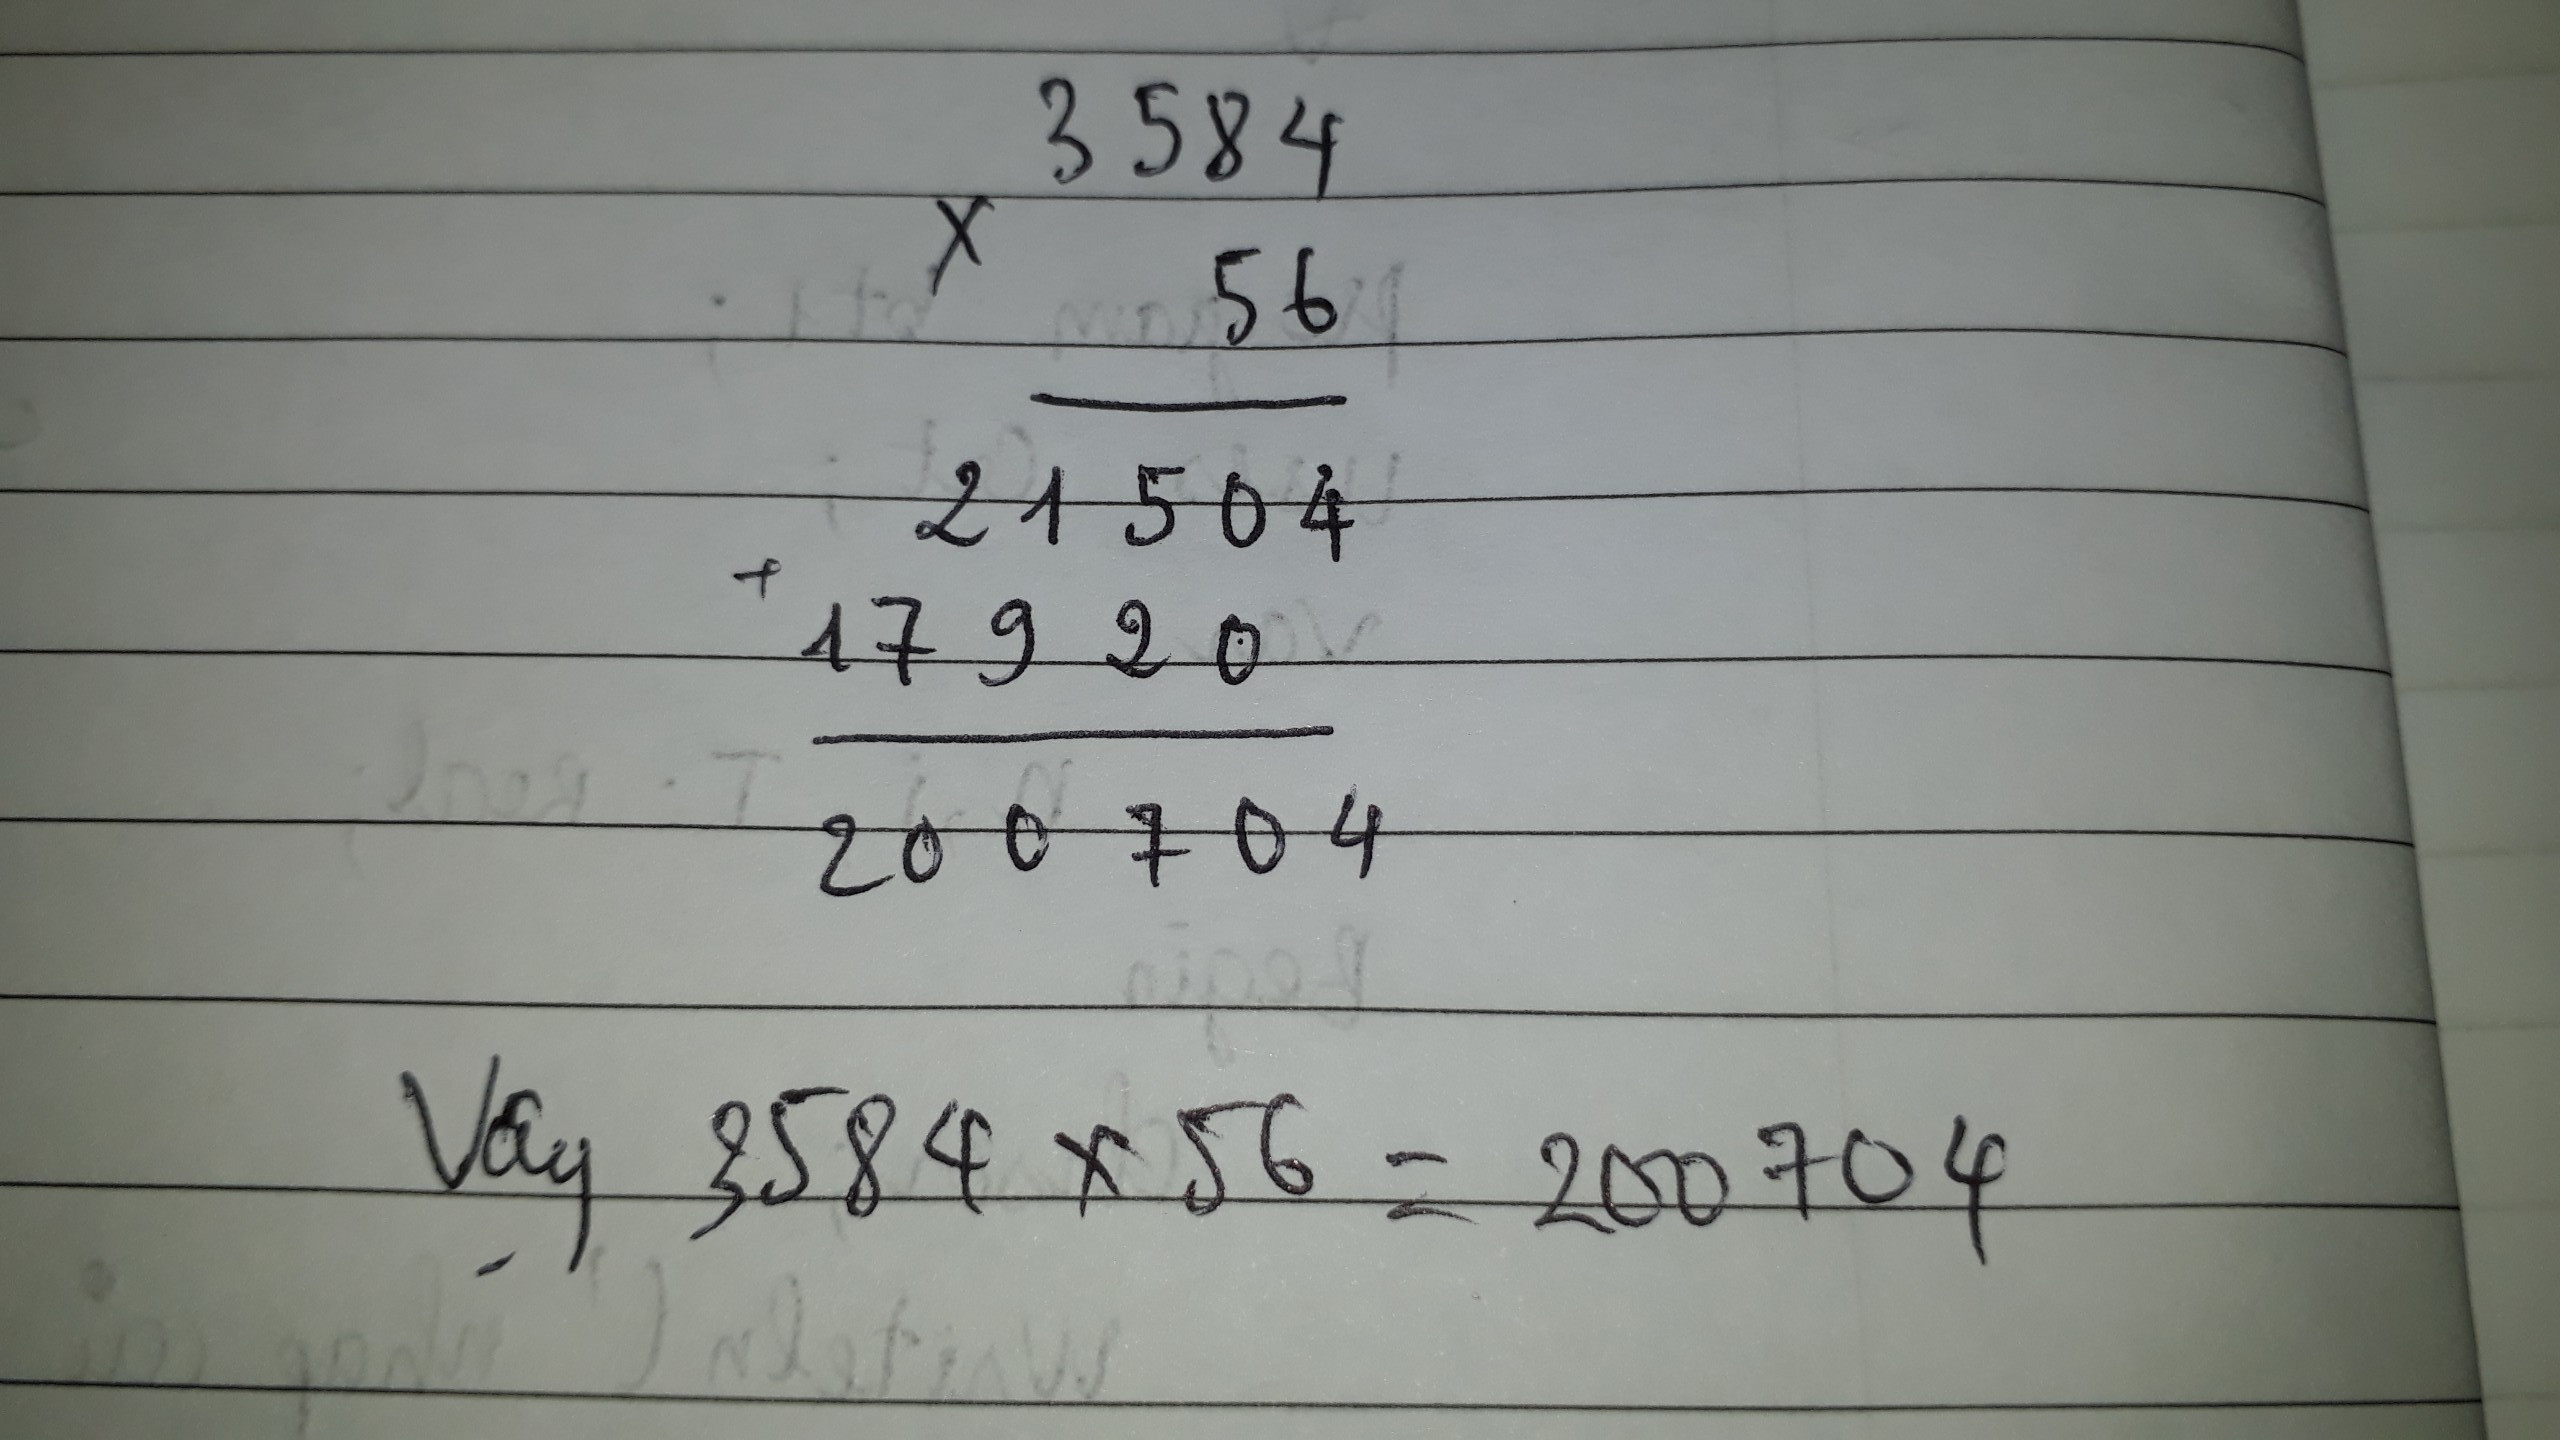 3584
x
56
21504
+
17920
200704
Vậy 3584 x 56 = 200704